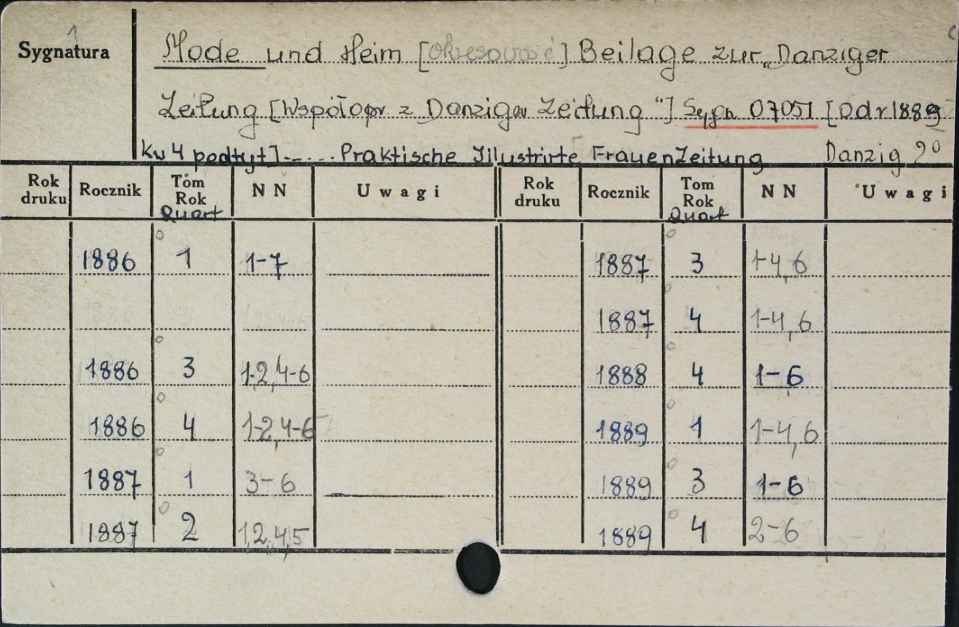 Sygnatura
Mode und Heim [Okresowość] Beilage zur „Danziger
Zeitung [Współopr z „Danziger Zeitung"] Sygn 07051 [Od r 1889
kw 4 podtyt] - .... Praktische Illustrirte FrauenZeitung Danzig 2°
Rok druku Rocznik Tom Rok Quart N N Uwagi Rok druku Rocznik Tom Rok Quart N N Uwagi
1886 1 1-7 1887 3 1-4,6
1887 4 1-4,6
1886 3 1-2,4-6 1888 4 1-6
1886 4 1-2,4-6 1889 1 1-4,6
1887 1 3-6 1889 3 1-6
1887 2 1,2,4,5 1889 4 2-6